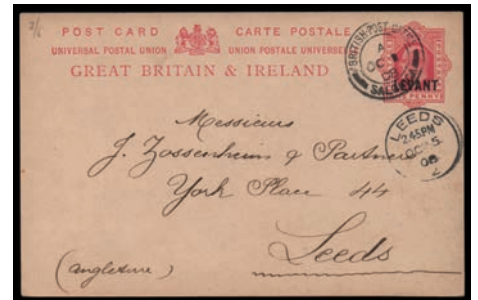 3/6
POST CARD CARTE POSTALE
UNIVERSAL POSTAL UNION UNION POSTALE UNIVERSELLE
GREAT BRITAIN & IRELAND
BRITISH POST OFFICE
A
OC
08
LEVANT
PENNY
LEEDS
2.45 PM
OC 5
08
Messieurs
J. Zossenheim & Partners
York Place 44
Leeds
(Angleterre)